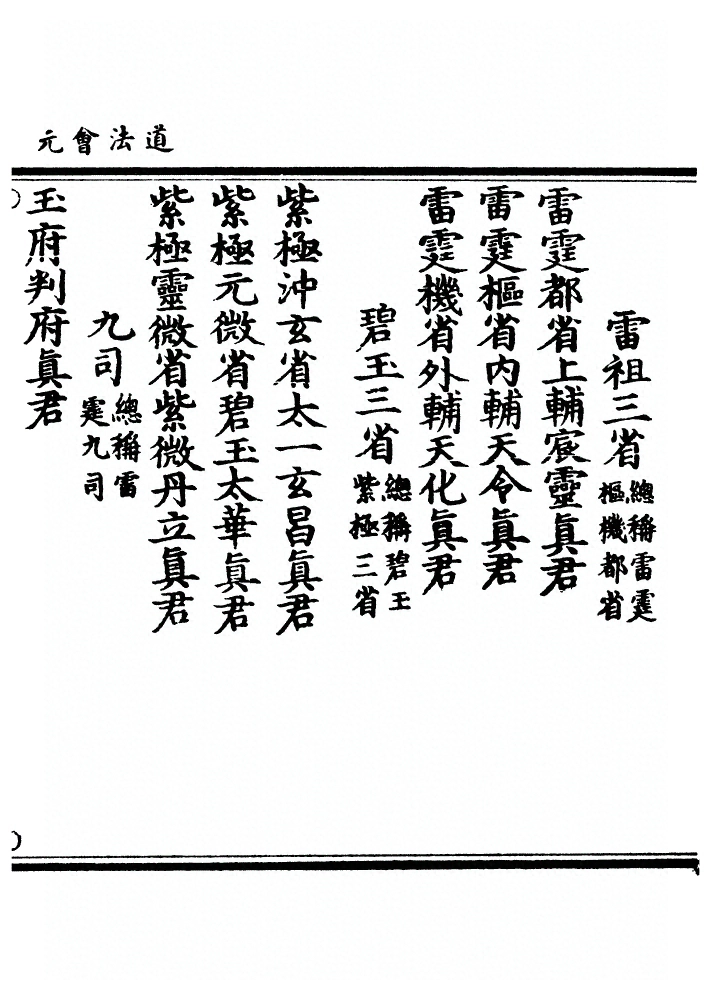 道法會元
雷祖三省 總稱雷霆樞機都省
雷霆都省上輔宸靈眞君
雷霆樞省內輔天令眞君
雷霆機省外輔天化眞君
碧玉三省 總稱碧玉紫極三省
紫極沖玄省太一玄昌眞君
紫極元微省碧玉太華眞君
紫極靈微省紫微丹立眞君
九司 總稱雷霆九司
玉府判府眞君